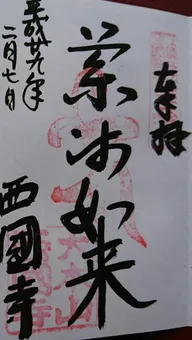 奉拝
薬師如来
平成廿九年
二月七日
西國寺
大本山